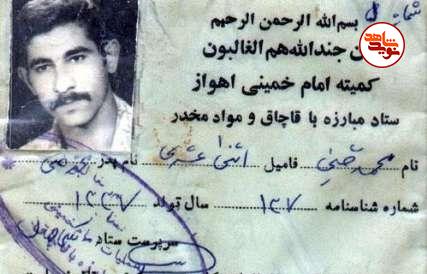 شماره
بسم الله الرحمن الرحیم
ن جندالله هم الغالبون
کمیته امام خمینی اهواز
ستاد مبارزه با قاچاق و مواد مخدر
نام محمد حسین فامیل اثنی عشری نام پدر
شماره شناسنامه ۱۳۷ سال تولد ۱۳۳۷
سرپرست ستاد
شاهد
نوید